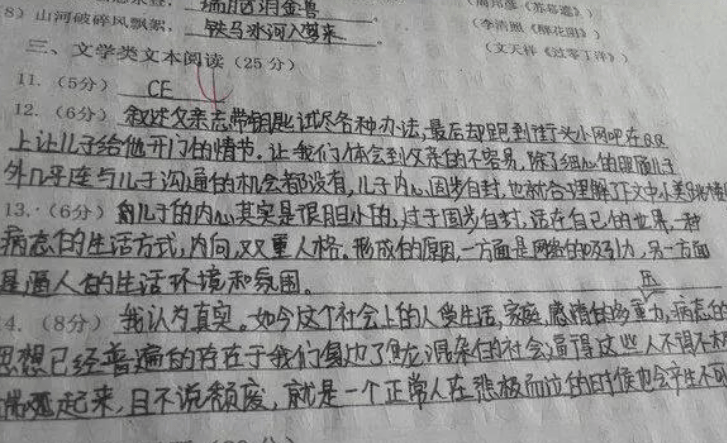 瑞脑消金兽
(周邦彦《苏幕遮》)
8) 山河破碎风飘絮, 铁马冰河入梦来 。
(李清照《醉花阴》)
(文天祥《过零丁洋》)
三、文学类文本阅读 (25 分)
11. (5分) CE
12. (6分) 叙述父亲忘带钥匙试尽各种办法,最后却跑到街头小网吧在QQ
上让儿子给他开门的情节。让我们体会到父亲的不容易,除了细心的照顾儿子
外几乎连与儿子沟通的机会都没有,儿子内心固步自封,也就合理解了下文中小美
13. (6分) 儿子的内心其实是很胆小的,过于固步自封,活在自己的世界,一种
病态的生活方式,内向,双重人格。形成的原因,一方面是网络的吸引力,另一方面
是逼人的生活环境和氛围。
4. (8分) 我认为真实。如今这个社会上的人受生活,家庭,感情的多重压力,病态的
思想已经普遍的存在于我们身边了鱼龙混杂的社会逼得这些人不得不
起来,且不说颓废,就是一个正常人在悲极而泣的时候也会产生不